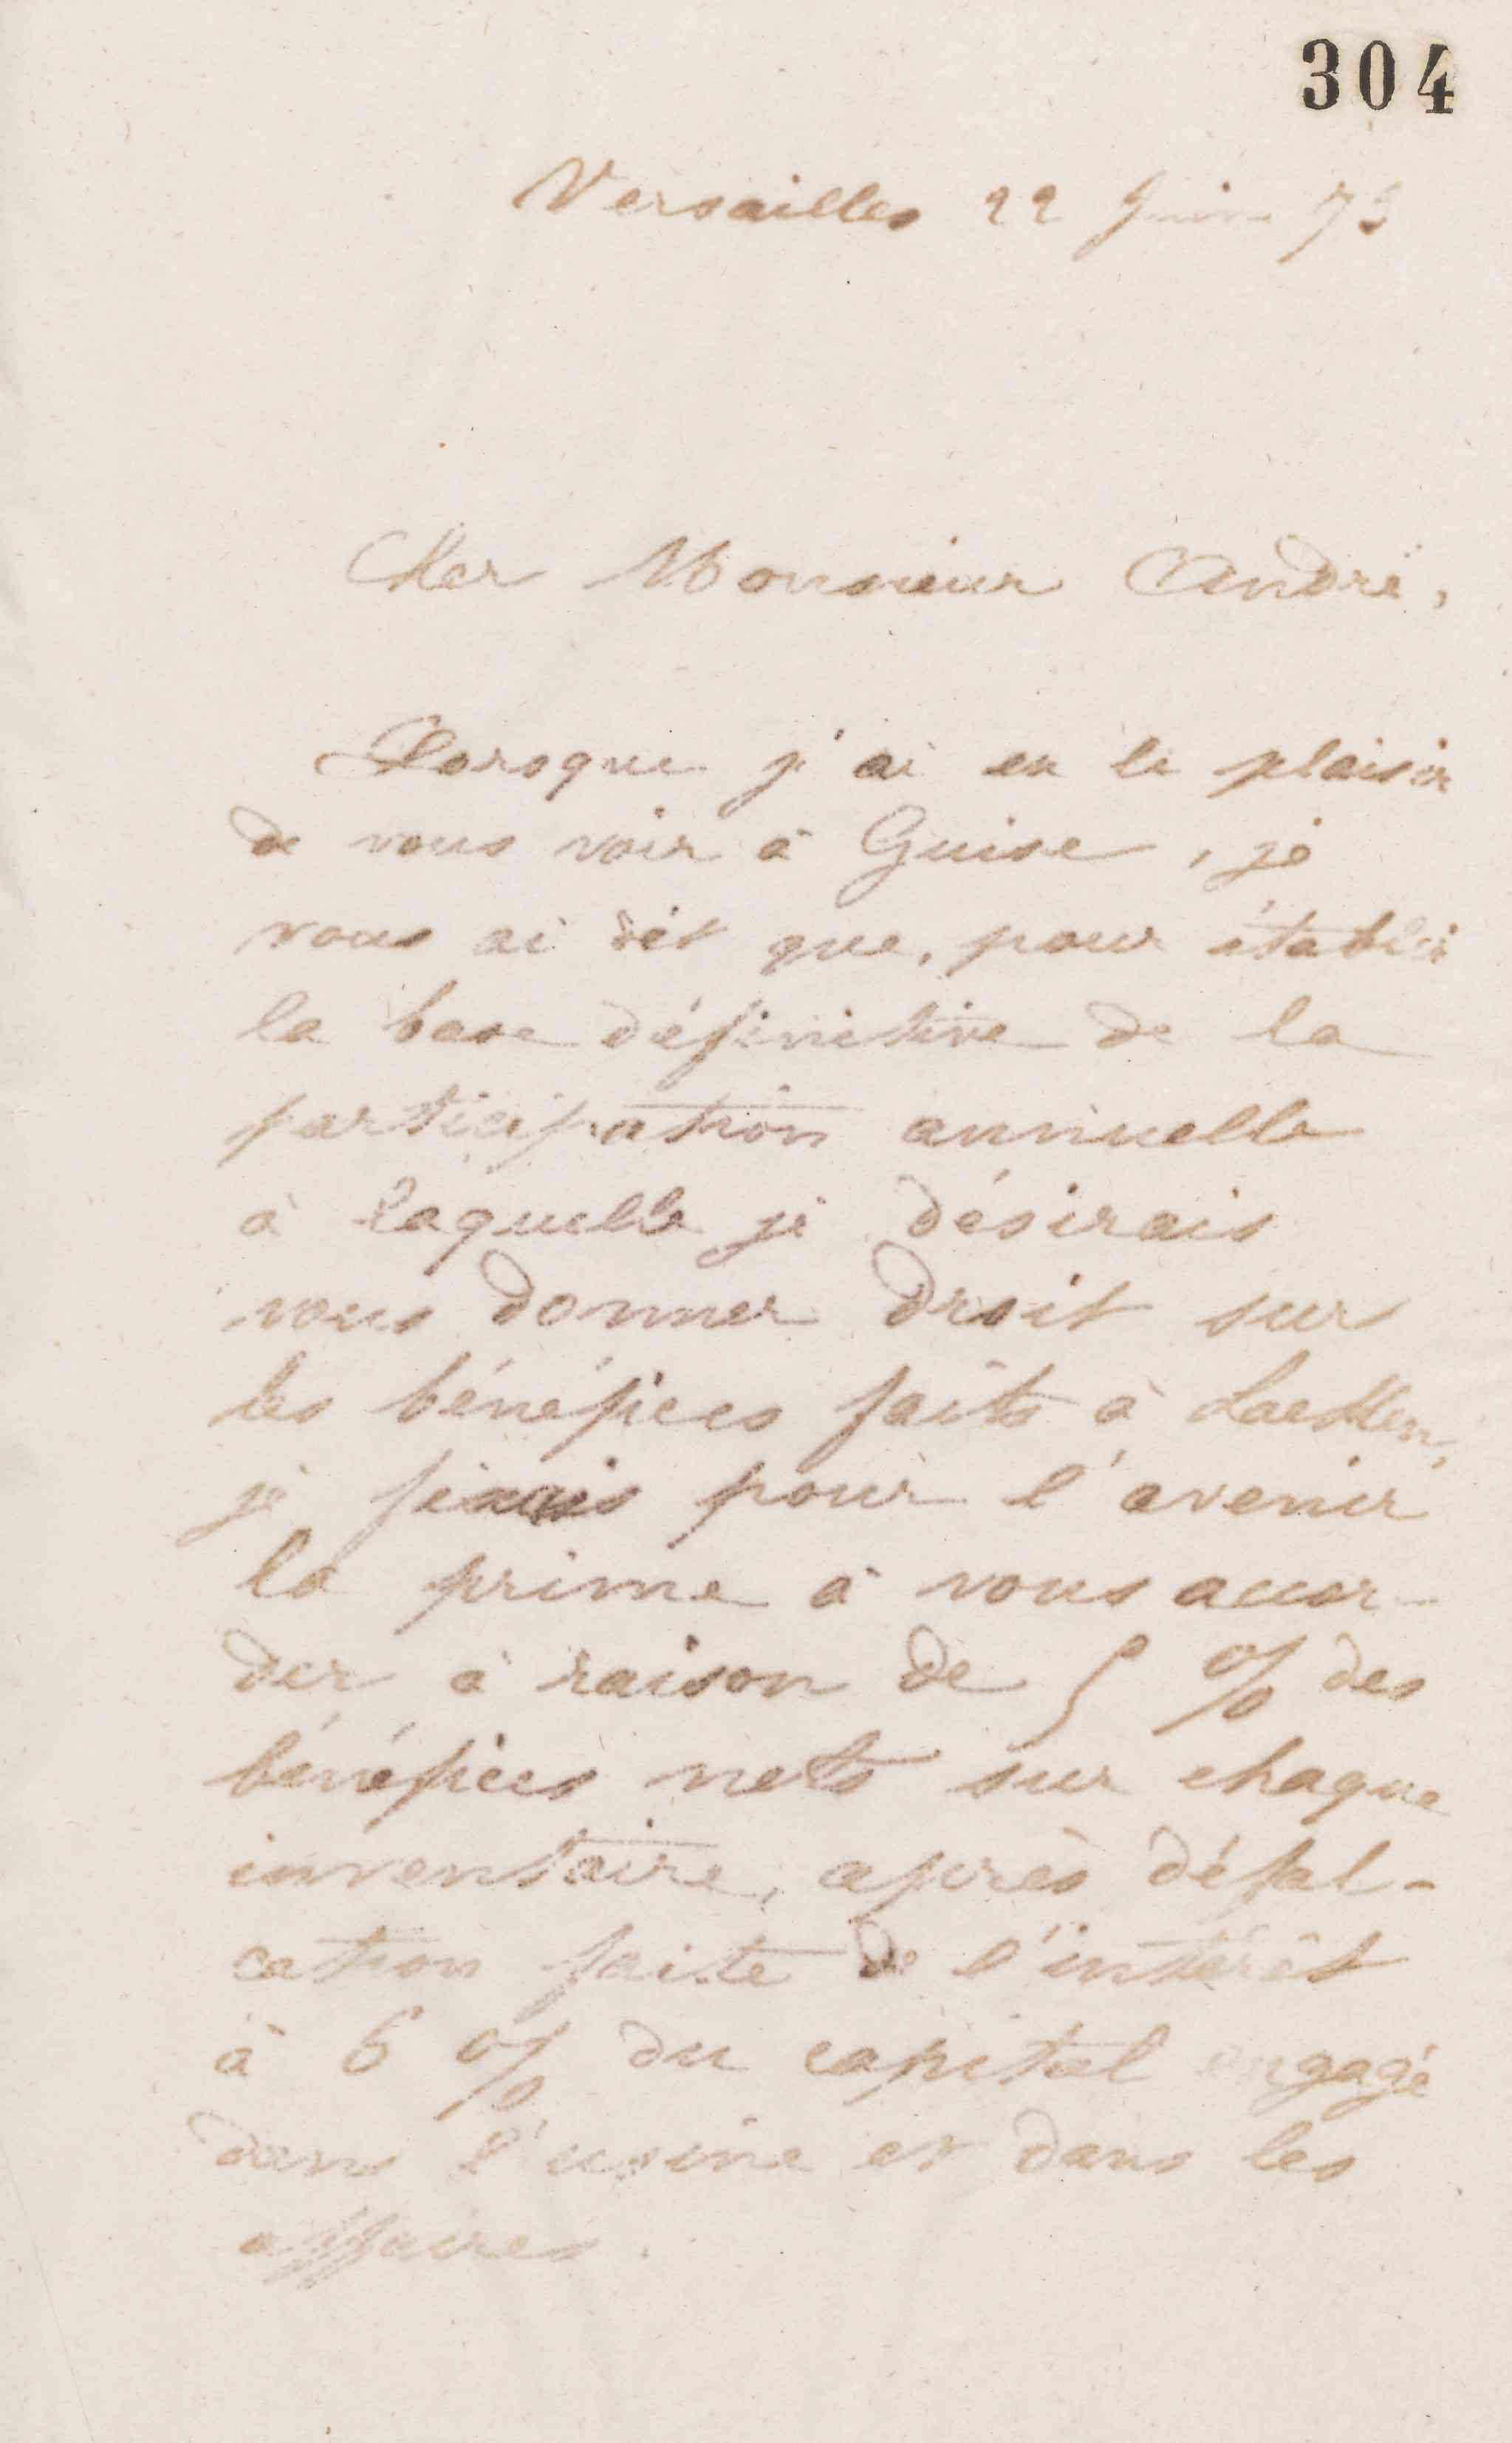 304
Versailles 22 Juin 75
Cher Monsieur André,
Lorsque j'ai eu le plaisir
de vous voir à Guise, je
vous ai dit que, pour établir
la base définitive de la
participation annuelle
à laquelle je désirais
vous donner droit sur
les bénéfices faits à Laeken,
je fixais pour l'avenir
la prime à vous accor-
der à raison de 5 % des
bénéfices nets sur chaque
inventaire, après défal-
cation faite de l'intérêt
à 6 % du capital engagé
dans l'usine et dans les
affaires.